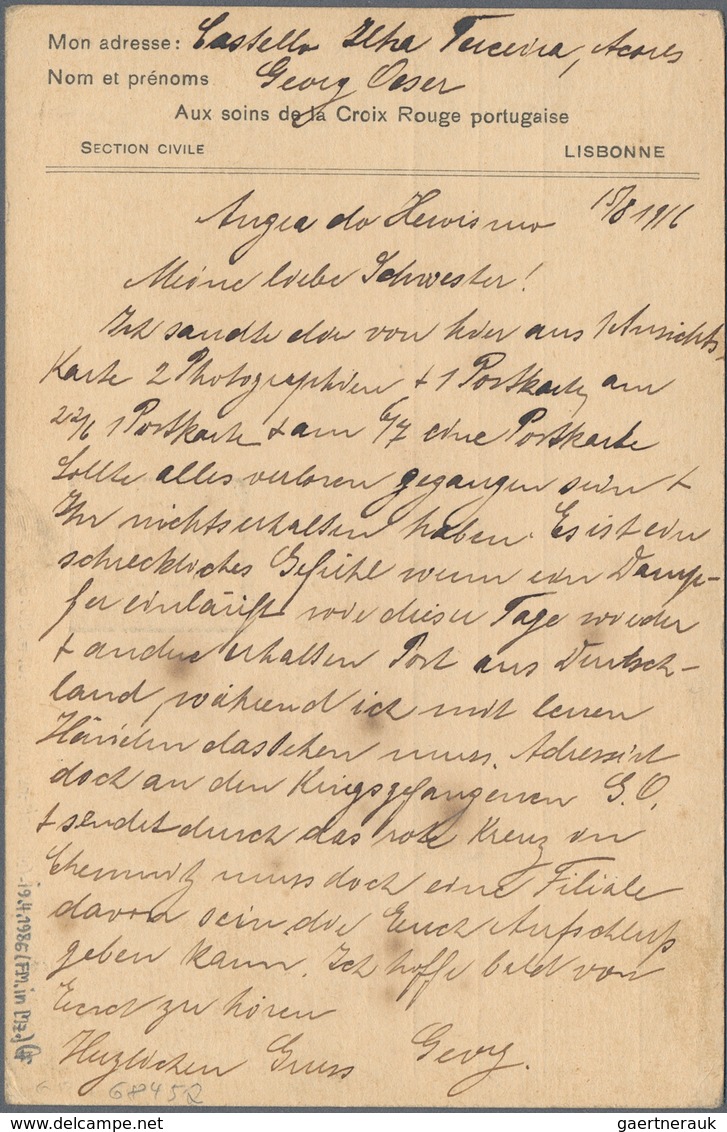 Mon adresse: Castello Ilha Terceira, Acores
Nom et prénoms Georg Oeser
Aux soins de la Croix Rouge portugaise
SECTION CIVILE LISBONNE
Angra do Heroismo 15/8 1916
Meine liebe Schwester!
Ich sandte dir von hier aus 1 Ansichts-
Karte 2 Photographien + 1 Postkarte, am
22/6 1 Postkarte + am 6/7 eine Postkarte
Sollte alles verloren gegangen sein +
Ihr nichts erhalten haben. Es ist ein
schreckliches Gefühl wenn ein Damp-
fer einläuft wie dieser Tage wieder
+ andere erhalten Post aus Deutsch-
land, während ich mit leeren
Händen dastehen muss. Adressirt
doch an den Kriegsgefangenen G.O.
+ sendet durch das rote Kreuz in
Chemnitz muss doch eine Filiale
davon sein die Euch Aufschluß
geben kann. Ich hoffe bald von
Euch zu hören
Herzlichen Gruss Georg.
19.4.1986 (FM, in Mz.)
68452
gaertnerauk